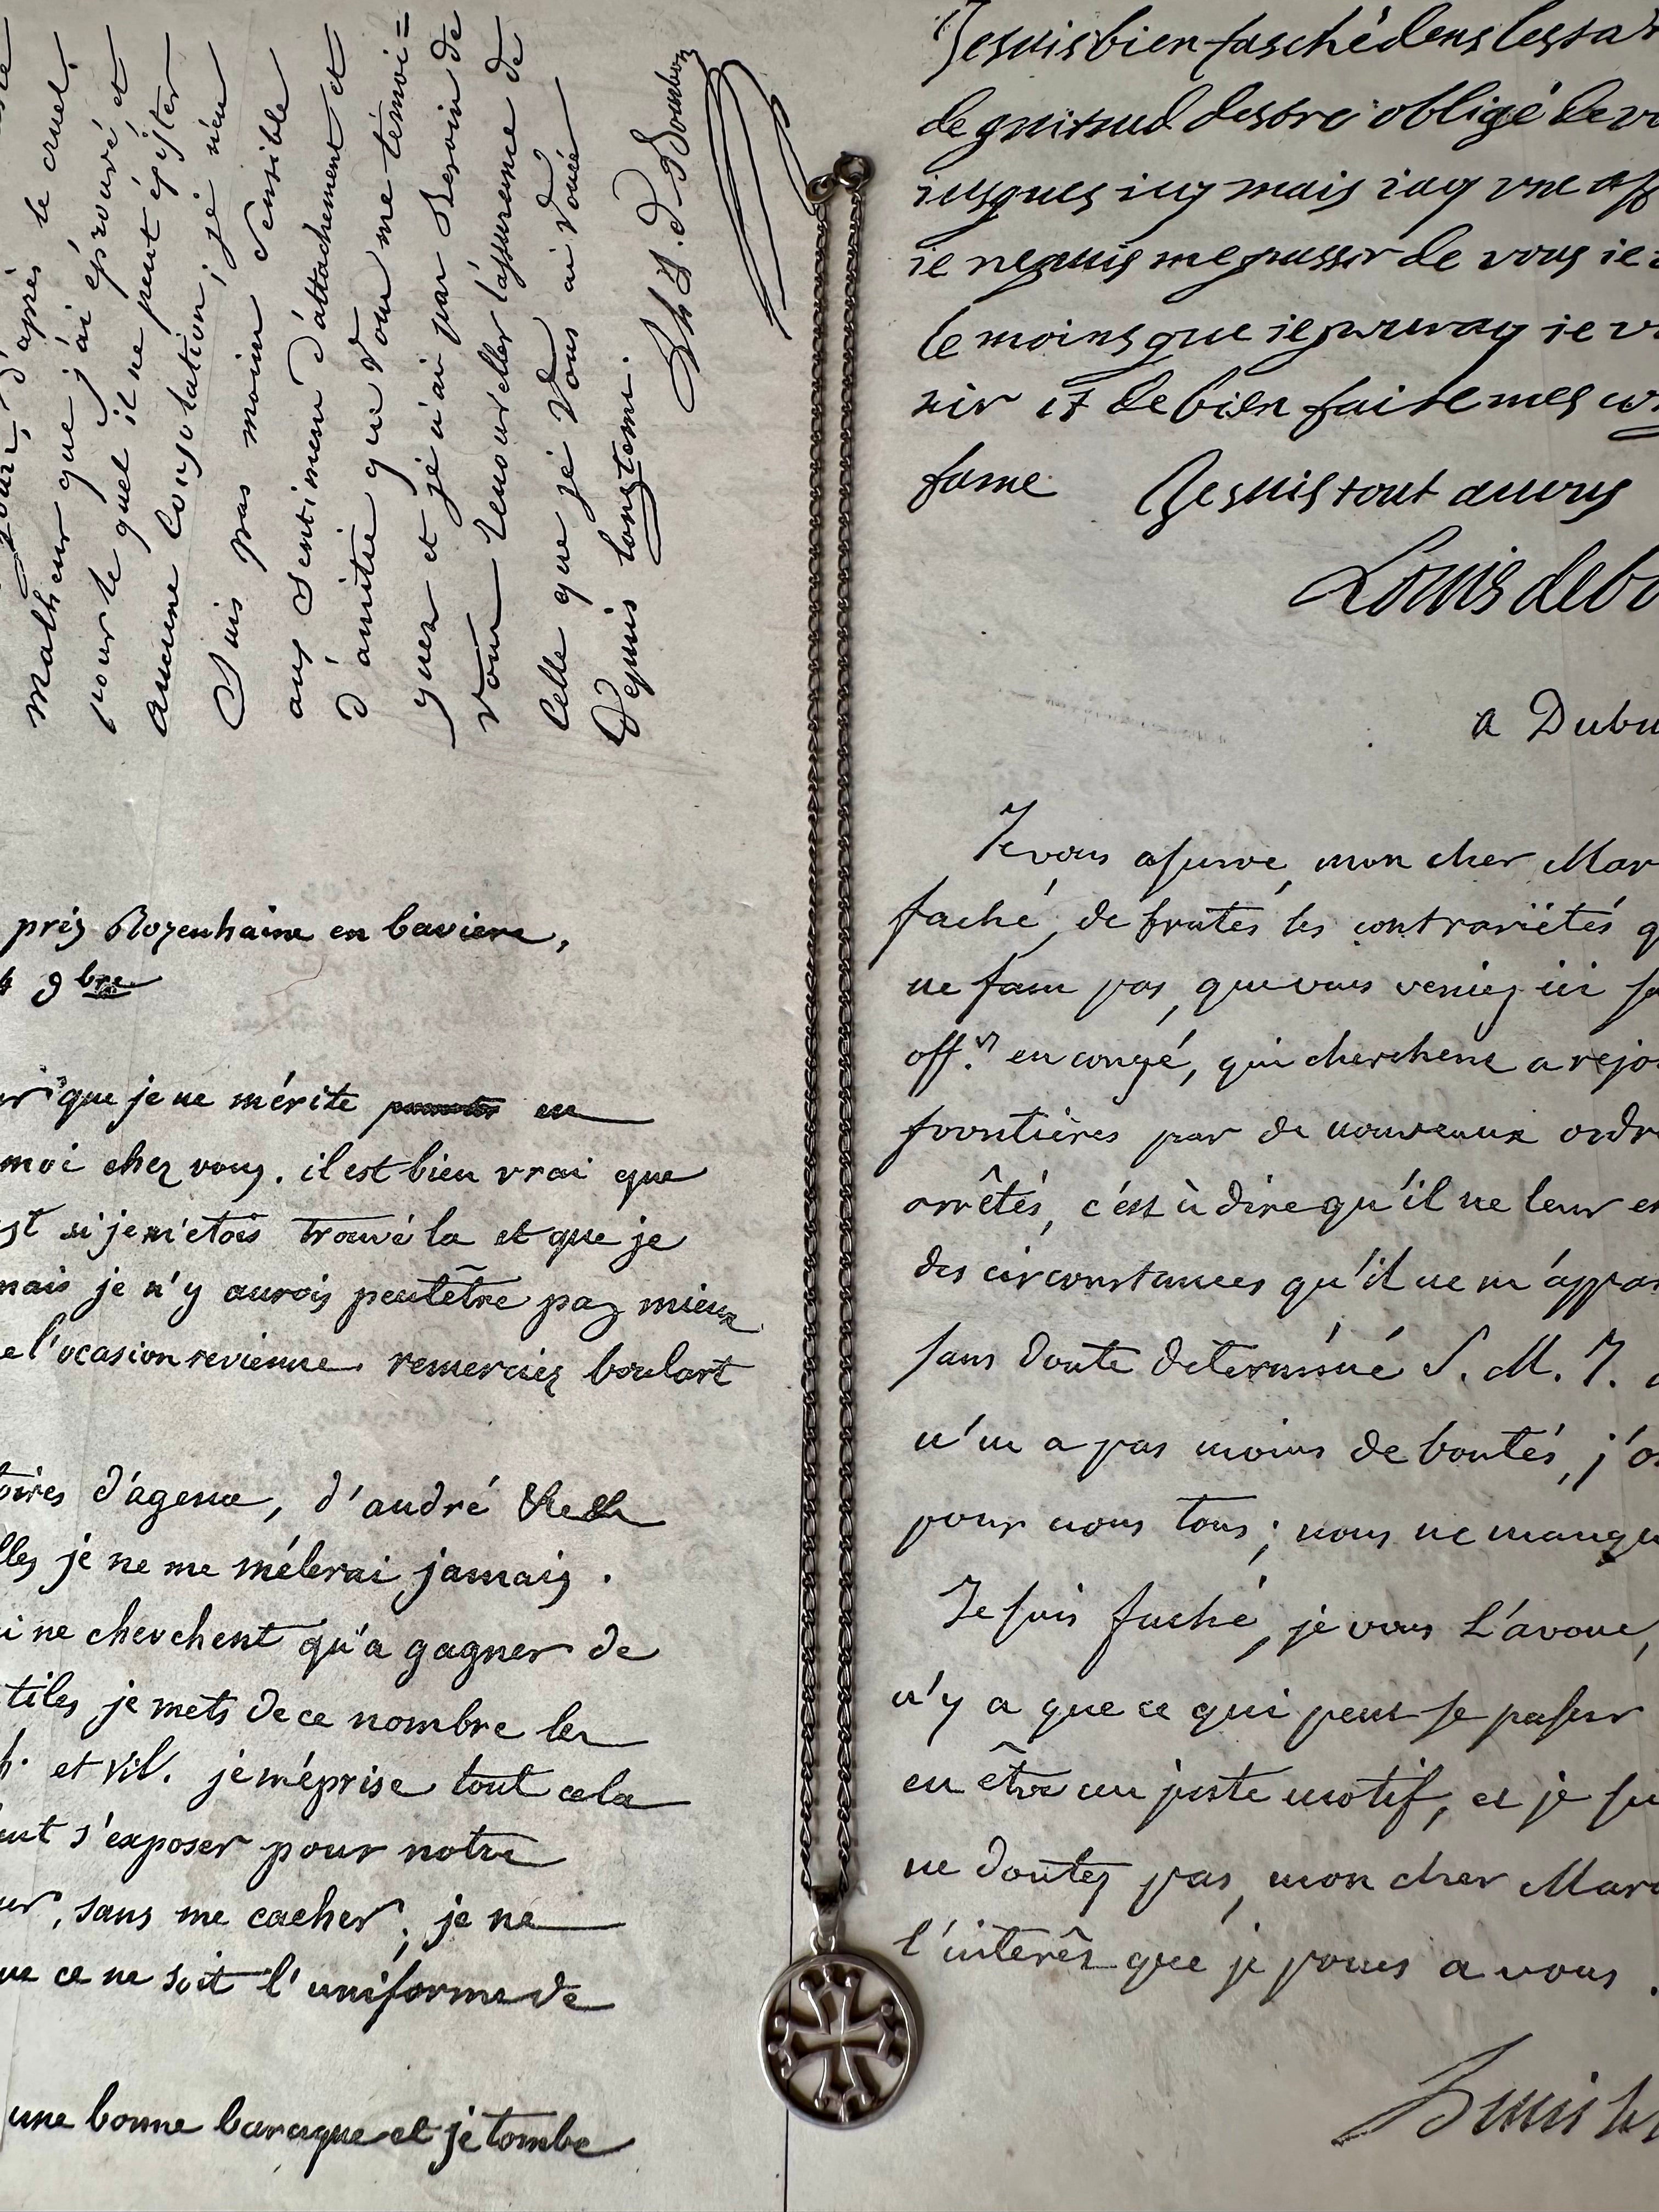 après le cruel
malheur que j'ai éprouvé et
pour le quel il ne peut éxister
aucune Consolation, je n'en
Suis pas moins sensible
aux Sentimens d'attachement et
d'amitié que vous me témoi=
gnez et je n'ai pas besoin de
vous renouveller l'assurence de
Celle que je vous ai vouée
Depuis longtems.
L. h. J. d. Bourbon
près Rozenhaine en baviere,
9bre
que je ne mérite en
moi chez vous. il est bien vrai que
si je m'etois trouvé la et que je
mais je n'y aurois peutêtre pas mieux
l'ocasion revienne. remerciez boulart
d'agence, d'andré
je ne me mélerai jamais.
ne cherchent qu'a gagner de
je mets de ce nombre les
et vil. je méprise tout cela
s'exposer pour notre
sans me cacher; je ne
ce ne soit l'uniforme de
une bonne baraque et je tombe
Je suis bien fasché dens les
de obligé de
iusques icy mais iay vne
ie ne puis me passer de vous ie
le moins que ie pouray ie
nir et de bien faire mes
fame Je suis tout a vous
Louis de bo
a Dubu
Je vous assure, mon cher Mar
faché, de toutes les contrariétés q
ne faut pas, que vous veniez ici
off.rs en congé, qui cherchent a rejo
frontières par de nouveaux ordr
arrêtés, c'est à dire qu'il ne leur es
des circonstances qu'il ne m'appar
sans doute determiné S. M. I.
n'en a pas moins de bontés, j'o
pour nous tous; nous ne manqu
Je suis faché, je vous l'avoue,
n'y a que ce qui peut se passer
en être un juste motif, et je su
ne doutez pas, mon cher Mar
l'interêt que je prens a vous.
Louis